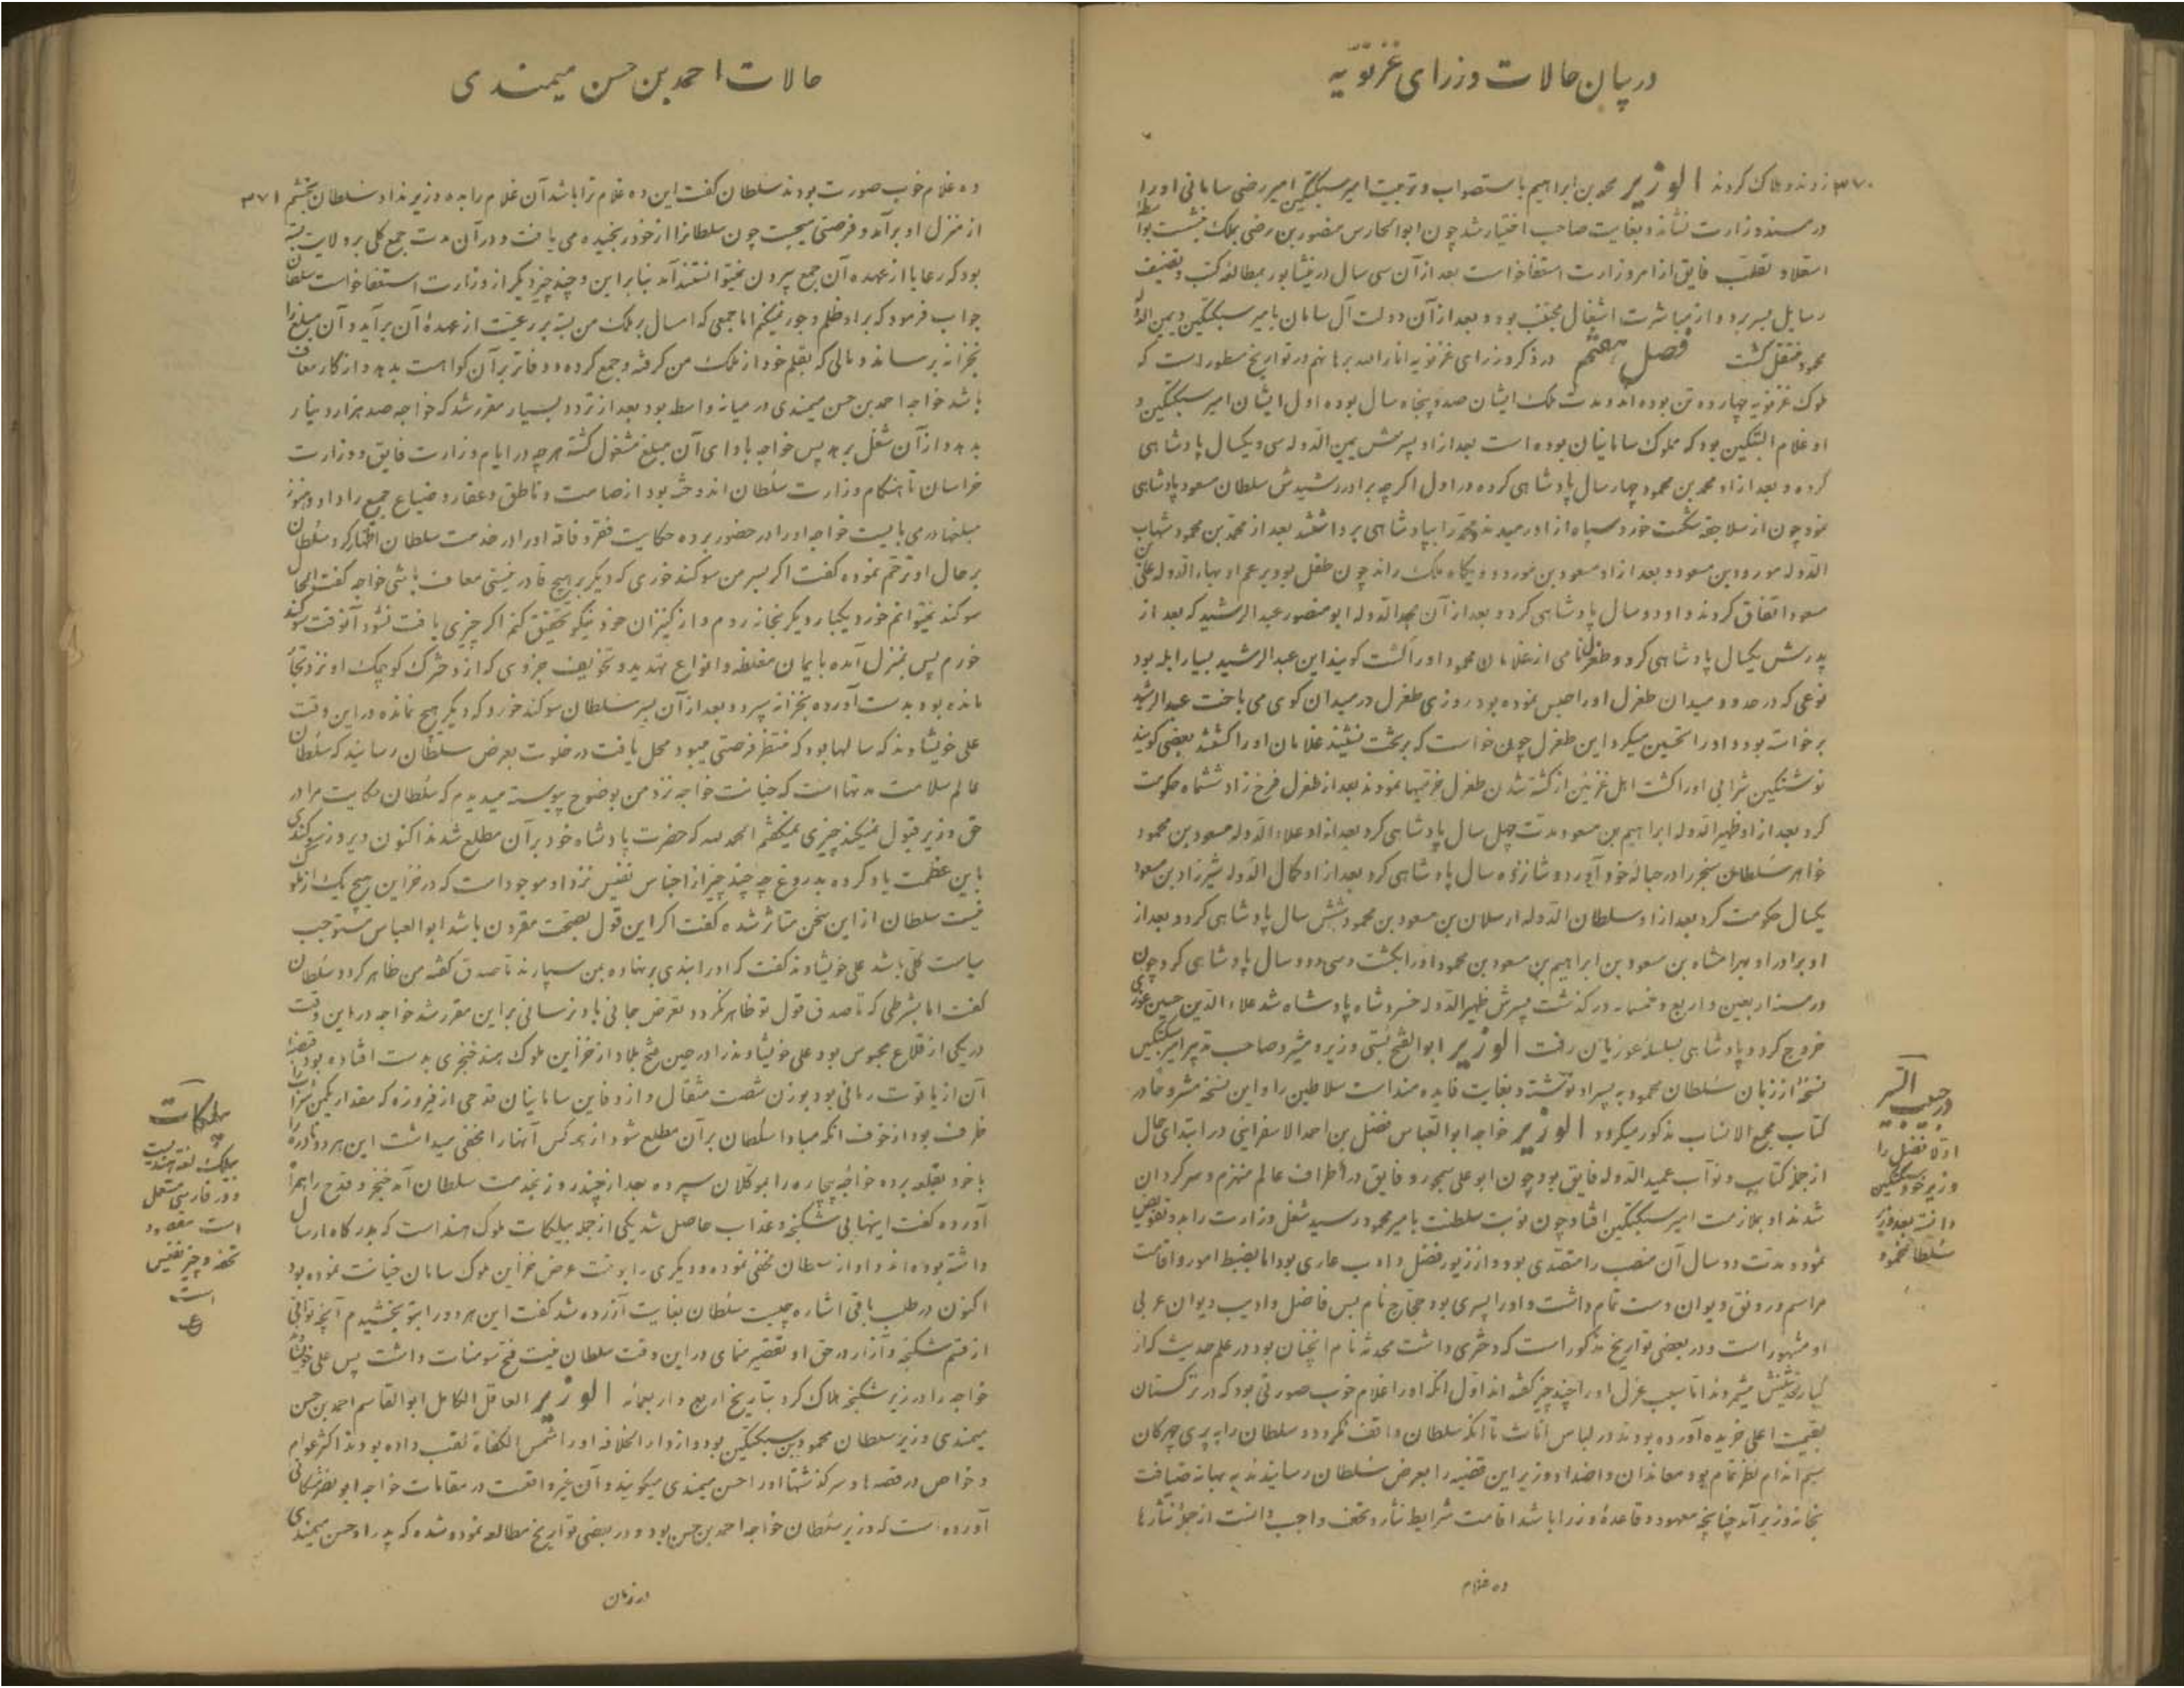 در بیان حالات وزرای غزنویه
۳۷۰
زدند و هلاک کردند الوزیر محمد بن ابراهیم باستصواب و تربیت امیر سبکتکین امیر رضی سامانی او را
در مسند وزارت نشاند و بغایت صاحب اختیار شد چون ابوالحارس منصور بن رضی بملک بنشست بواسطهٔ
استعلا و تغلب فایق از امر وزارت استعفا خواست بعد از آن سی سال در نیشابور بمطالعه کتب و تصنیف
رسایل بسر برد و از مباشرت اشغال مجتنب بود و بعد از آن دولت آل سامان بامیر سبکتکین و یمین الدوله
محمود منتقل گشت فصل هفتم در ذکر وزرای غزنویه انار الله برهانهم در تواریخ مسطور است که
ملوک غزنویه چهارده تن بوده‌اند و مدت ملک ایشان صد و پنجاه سال بوده اول ایشان امیر سبکتکین و
او غلام البتکین بود که مملوک سامانیان بوده است بعد از او پسرش یمین الدوله سی و یکسال پادشاهی
کرده و بعد از او محمد بن محمود چهار سال پادشاهی کرده در اول اگر چه برادر رشیدش سلطان مسعود پادشاهی
نمود چون از سلاجقه شکست خورد سپاه از او رمیدند محمد را بپادشاهی برداشتند بعد از محمد بن محمود شهاب
الدوله مودود بن مسعود و بعد از او مسعود بن مودود و یکماه ملک راند چون طفل بود بر عم او بهاء الدوله علی بن
مسعود اتفاق کردند و او دو سال پادشاهی کرد و بعد از آن مجد الدوله ابو منصور عبد الرشید که بعد از
پدرش یکسال پادشاهی کرد و طغرل نامی از غلامان محمود او را کشت گویند این عبد الرشید بسیار ابله بود
نوعی که در حدود میدان طغرل او را حبس نموده بود روزی طغرل در میدان گوی می باخت عبد الرشید
برخواسته بود و او را تحسین میکرد این طغرل چون خواست که بر تخت نشیند غلامان او را کشتند بعضی گویند
نوشتکین شرابی او را کشت اهل غزنین از کشته شدن طغرل خرمیها نمودند بعد از طغرل فرخ زاد ششماه حکومت
کرد بعد از او ظهیر الدوله ابراهیم بن مسعود مدت چهل سال پادشاهی کرد بعد از او علاء الدوله مسعود بن محمود
خواهر سلطان سنجر را در حباله خود آورد و شانزده سال پادشاهی کرد بعد از او کمال الدوله شیرزاد بن مسعود
یکسال حکومت کرد بعد از او سلطان الدوله ارسلان بن مسعود بن محمود شش سال پادشاهی کرد و بعد از
او برادر او بهرامشاه بن مسعود بن ابراهیم بن مسعود بن محمود او را بکشت و سی و دو سال پادشاهی کرد چون
در سنه اربعین و اربع و خمسمایه درگذشت پسرش ظهیر الدوله خسرو شاه پادشاه شد علاء الدین حسین غوری
خروج کرد و پادشاهی بسلسله غوریان رفت الوزیر ابوالفتح بستی وزیر و مشیر و صاحب تدبیر امیر سبکتکین
نسخهٔ از زبان سلطان محمود به پسر او نوشته و بغایت فایده منداست سلاطین را و این نسخه مشروحا در
کتاب مجمع الانساب مذکور میگردد الوزیر خواجه ابو العباس فضل بن احمد الاسفراینی در ابتدای حال
از جمله کتاب و نواب عمید الدوله فایق بود چون ابو علی سیمجور و فایق در اطراف عالم منهزم و سرگردان
شدند او بملازمت امیر سبکتکین افتاد چون نوبت سلطنت بامیر محمود رسید شغل وزارت را بدو تفویض
نمود و مدت دو سال آن منصب را متصدی بود و از زیور فضل و ادب عاری بود اما بضبط امور و اقامت
مراسم و رونق دیوان دست تمام داشت و او را پسری بود حجاج نام بس فاضل و ادیب دیوان عربی
او مشهور است و در بعضی تواریخ مذکور است که دختری داشت محدثه نام انچنان بود در علم حدیث که از
کبار محدثینش میشمردند اما سبب عزل او را چند چیز گفته اند اول انکه او را غلام خوب صورتی بود که در ترکستان
بقیمت اعلی خریده آورده بودند در لباس اناث تا آنکه سلطان واقف نگردد و سلطان را به پری چهرگان
سیم اندام نظر تمام بود معاندان و اضداد وزیر این قضیه را بعرض سلطان رسانیدند به بهانه ضیافت
بخانه وزیر آمد چنانچه معهود و قاعدهٔ وزرا باشد اقامت شرایط نثار و تحف واجب دانست از جمله نثارها
ده غلام
در حبیب السیر
اولا فضل را
وزیر خود سبکتکین
دانسته بعد وزیر
سلطان محمود
حالات احمد بن حسن میمندی
۳۷۱
ده غلام خوب صورت بودند سلطان گفت این ده غلام ترا باشد آن غلام را بده وزیر نداد سلطان بخشم
از منزل او برآمد و فرصتی میجست چون سلطانرا از خود رنجیده می یافت و در آن مدت جمع کلی بر ولایت بسته
بود که رعایا از عهده آن جمع بیرون نمیتوانستند آمد بنابراین و چند چیز دیگر از وزارت استعفا خواست سلطان
جواب فرمود که بر او ظلم و جور نمیکنم اما جمعی که امسال بر ملک من بسته بر رعیت از عهدهٔ آن برآید و آن مبلغ را
بخزانه برساند و مالی که بقلم خود از ملک من گرفته و جمع کرده و دفاتر بر آن گواهست بدهد و از کار معاف
باشد خواجه احمد بن حسن میمندی در میانه واسط بود بعد از تردد بسیار مقرر شد که خواجه صد هزار دینار
بدهد و از آن شغل برهد پس خواجه بادای آن مبلغ مشغول گشته هر چه در ایام وزارت فایق و وزارت
خراسان تا هنگام وزارت سلطان اندوخته بود از صامت و ناطق و عقار و ضیاع جمیع را داد و هنوز
مبلغها در می بایست خواجه او را در حضور برده حکایت فقر و فاقه او را در خدمت سلطان اظهار کرد سلطان
بر حال او ترحم نموده گفت اگر بسر من سوگند خوری که دیگر بر هیچ قادر نیستی معاف باشی خواجه گفت الحال
سوگند نمیتوانم خورد یکبار دیگر بخانه روم و از کنیزان خود نیکو تحقیق کنم اگر چیزی یافت نشود آنوقت سوگند
خورم پس بمنزل آمده بایمان مغلظه و انواع تهدید و تخویف جزوی که از دخترک کوچک او نزد تجار
مانده بود بدست آورده بخزانه سپرد و بعد از آن بسر سلطان سوگند خورد که دیگر هیچ نمانده در این وقت
علی خویشاوند که سالها بود که منتظر فرصتی میبود محل یافت در خلوت بعرض سلطان رسانید که سلطان
عالم سلامت مدتهاست که خیانت خواجه نزد من بوضوح پیوسته میدیدم که سلطان حکایت مرا در
حق وزیر قبول نمیکند چیزی نمیگفتم الحمد لله که حضرت پادشاه خود بر آن مطلع شدند اکنون دیروز سوگندی
باین عظمت یاد کرده بدروغ چه چند چیز از اجناس نفیس نزد او موجود است که در خزاین هیچ یک از ملوک
نیست سلطان از این سخن متاثر شده گفت اگر این قول بصحت مقرون باشد ابوالعباس مستوجب
سیاست کلی باشد علی خویشاوند گفت که او را بندی بر نهاده بمن سپارند تا صدق گفته من ظاهر گردد سلطان
گفت اما بشرطی که تا صدق قول تو ظاهر نگردد تعرض جانی باو نرسانی بر این مقرر شد خواجه در این وقت
در یکی از قلاع محبوس بود علی خویشاوند را در حین فتح بلاد از خزاین ملوک هند خنجری بدست افتاده بود قبضه
آن از یاقوت رمانی بود بوزن شصت مثقال و از دفاین سامانیان قدحی از فیروزه که مقدار یکمن شراب را
ظرف بود از خوف انکه مبادا سلطان بر آن مطلع شود از همه کس آنها را مخفی میداشت این هر دو نادره را
با خود بقلعه برده خواجه بیچاره را بموکلان سپرده بعد از چند روز بخدمت سلطان آمد خنجر و قدح را همراه
آورده گفت اینها بی شکنجه و عذاب حاصل شد یکی از جمله بیلکات ملوک هند است که بدرگاه ارسال
داشته بوده‌اند و او از سلطان مخفی نموده و دیگری را بوقت عرض خزاین ملوک سامان خیانت نموده بود
اکنون در طلب باقی اشاره چیست سلطان بغایت آزرده شد گفت این هر دو را بتو بخشیدم آنچه توانی
از قسم شکنجه و آزار در حق او تقصیر منمای در این وقت سلطان نیت فتح سومنات داشت پس علی خویشاوند
خواجه را در زیر شکنجه هلاک کرد بتاریخ اربع و اربعمائه الوزیر العاقل الکامل ابوالقاسم احمد بن حسن
میمندی وزیر سلطان محمود بن سبکتکین بود و از دار الخلافه او را شمس الکفاة لقب داده بودند اکثر عوام
و خواص در قصه ها و سرگذشتها او را حسن میمندی میگویند و آن غیر واقعست در مقامات خواجه ابو نصر مشکانی
آورده است که وزیر سلطان خواجه احمد بن حسن بود و در بعضی تواریخ مطالعه نموده شده که پدر او حسن میمندی
در زمان
بیلکات
بیلک لغة هندیست
و در فارسی مستعمل
است مقصود
تحفه و چیز نفیس
است